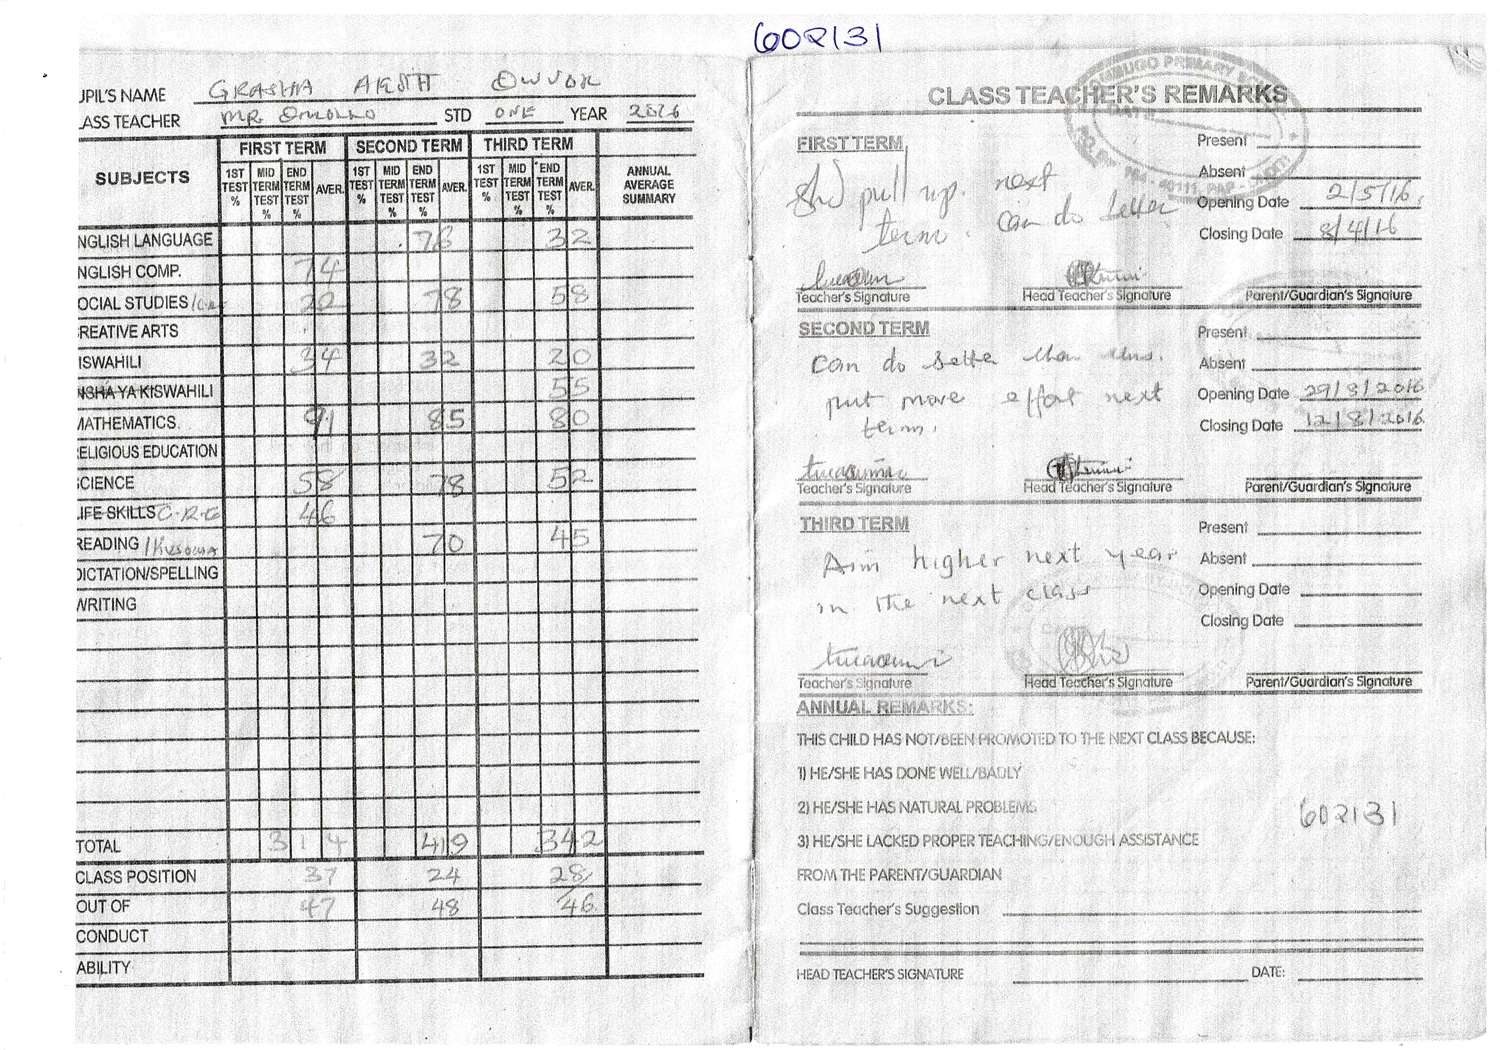 602131
UPIL'S NAME GRASHA AKOTH OWUOR
ASS TEACHER MR. STD ONE YEAR 2016
SUBJECTS FIRST TERM SECOND TERM THIRD TERM ANNUAL AVERAGE SUMMARY
1ST TEST % MID TERM TEST % END TERM TEST % AVER. 1ST TEST % MID TERM TEST % END TERM TEST % AVER. 1ST TEST % MID TERM TEST % END TERM TEST % AVER.
NGLISH LANGUAGE 76 32
NGLISH COMP. 74
OCIAL STUDIES 78 58
REATIVE ARTS
ISWAHILI 34 32 20
NSHA YA KISWAHILI 55
MATHEMATICS. 91 85 80
ELIGIOUS EDUCATION
CIENCE 58 78 52
IFE SKILLS C.R.E 46
READING 70 45
DICTATION/SPELLING
WRITING
TOTAL 314 419 342
CLASS POSITION 37 24 28
OUT OF 47 48 46
CONDUCT
ABILITY
CLASS TEACHER'S REMARKS
FIRST TERM
pull up. next
term. Can do better
Present
Absent
Opening Date 2/5/16
Closing Date 8/4/16
Teacher's Signature Head Teacher's Signature Parent/Guardian's Signature
SECOND TERM
Can do better than this.
put more effort next
term.
Present
Absent
Opening Date 29/8/2016
Closing Date 12/8/2016
Teacher's Signature Head Teacher's Signature Parent/Guardian's Signature
THIRD TERM
Aim higher next year
in the next class
Present
Absent
Opening Date
Closing Date
Teacher's Signature Head Teacher's Signature Parent/Guardian's Signature
ANNUAL REMARKS:
THIS CHILD HAS NOT/BEEN PROMOTED TO THE NEXT CLASS BECAUSE:
1) HE/SHE HAS DONE WELL/BADLY
2) HE/SHE HAS NATURAL PROBLEMS
602131
3) HE/SHE LACKED PROPER TEACHING/ENOUGH ASSISTANCE
FROM THE PARENT/GUARDIAN
Class Teacher's Suggestion
HEAD TEACHER'S SIGNATURE DATE: